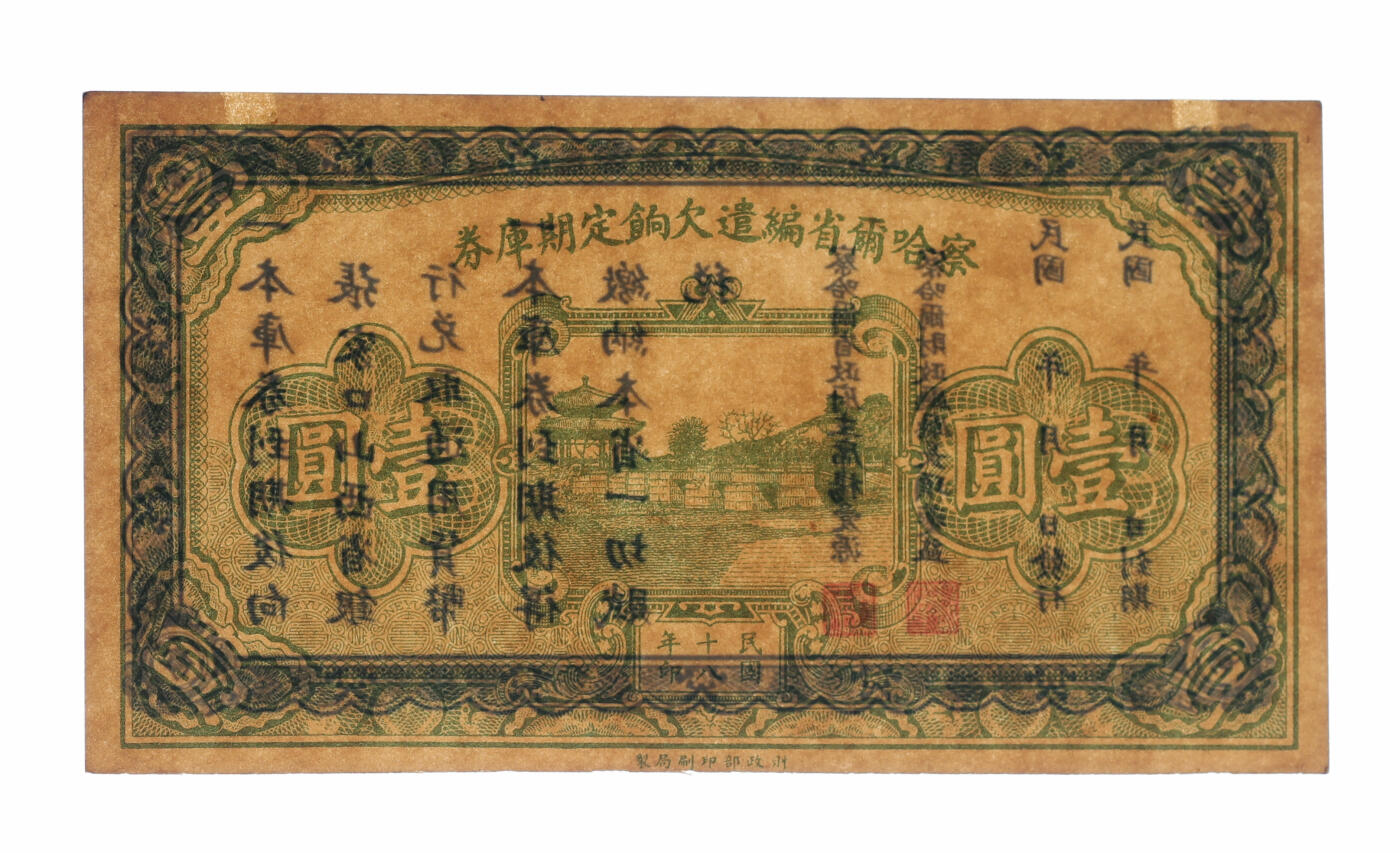 察哈爾省編遣欠餉定期庫券
壹圓
壹圓
民國十八年印
財政部印刷局製
一本庫券到期後向
張家口山西省銀
行兌取通用貨幣
一本庫券到期後得
繳納本省一切賦
稅
察哈爾省政府主席楊愛源
察哈爾財政
民國 年 月 日發行
民國 年 月 日到期